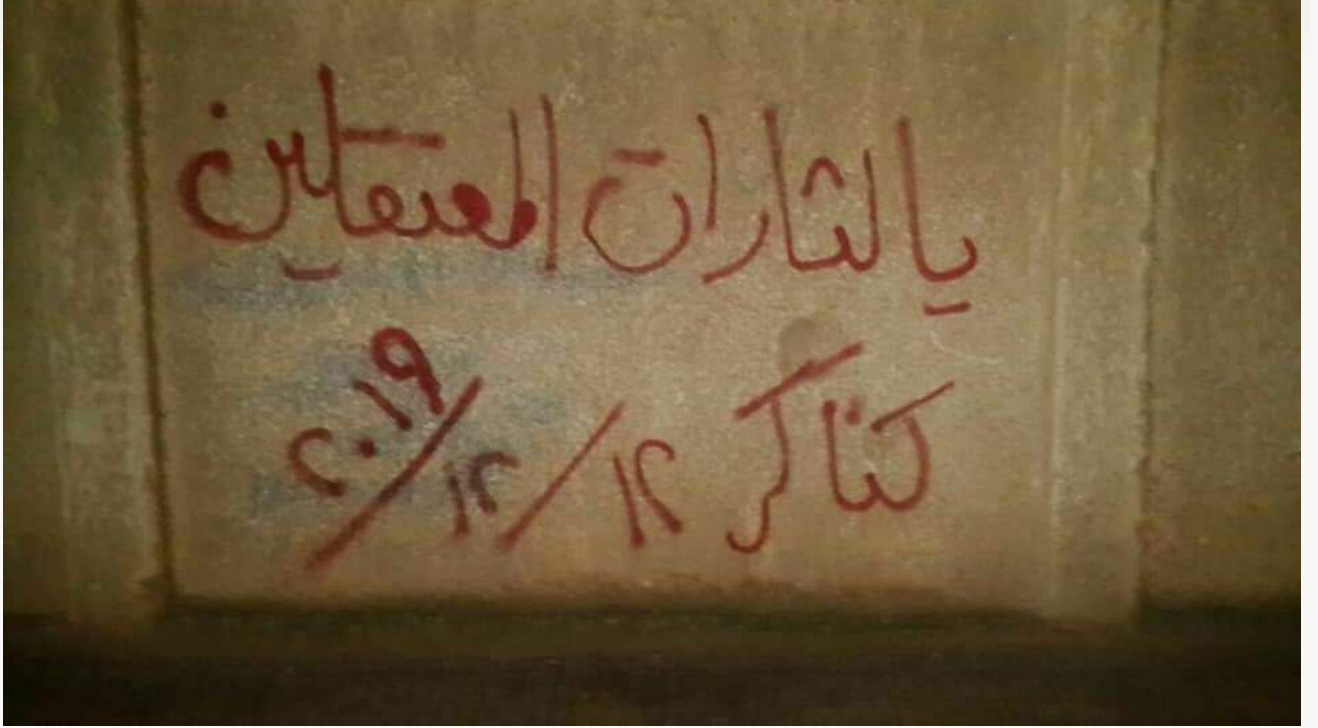 يا لثارات المعتقلين
كناكر ١٢/١٢/٢٠١٩